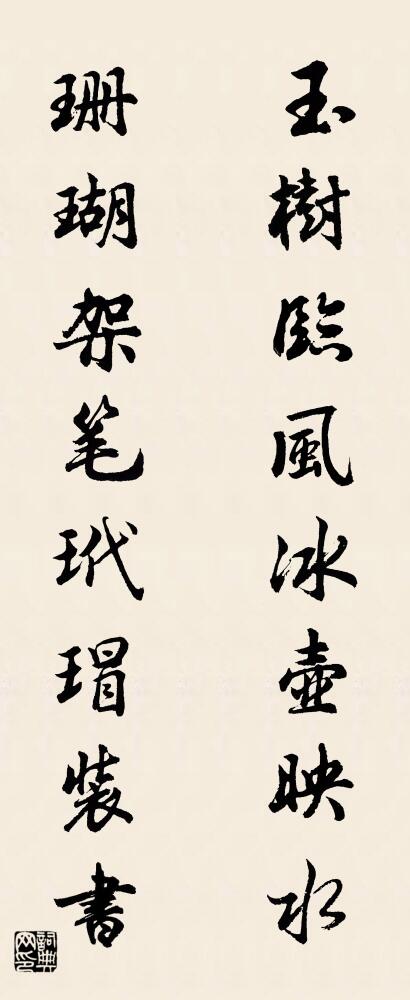 玉樹臨風冰壺映水
珊瑚架笔玳瑁裝書
詞典網印